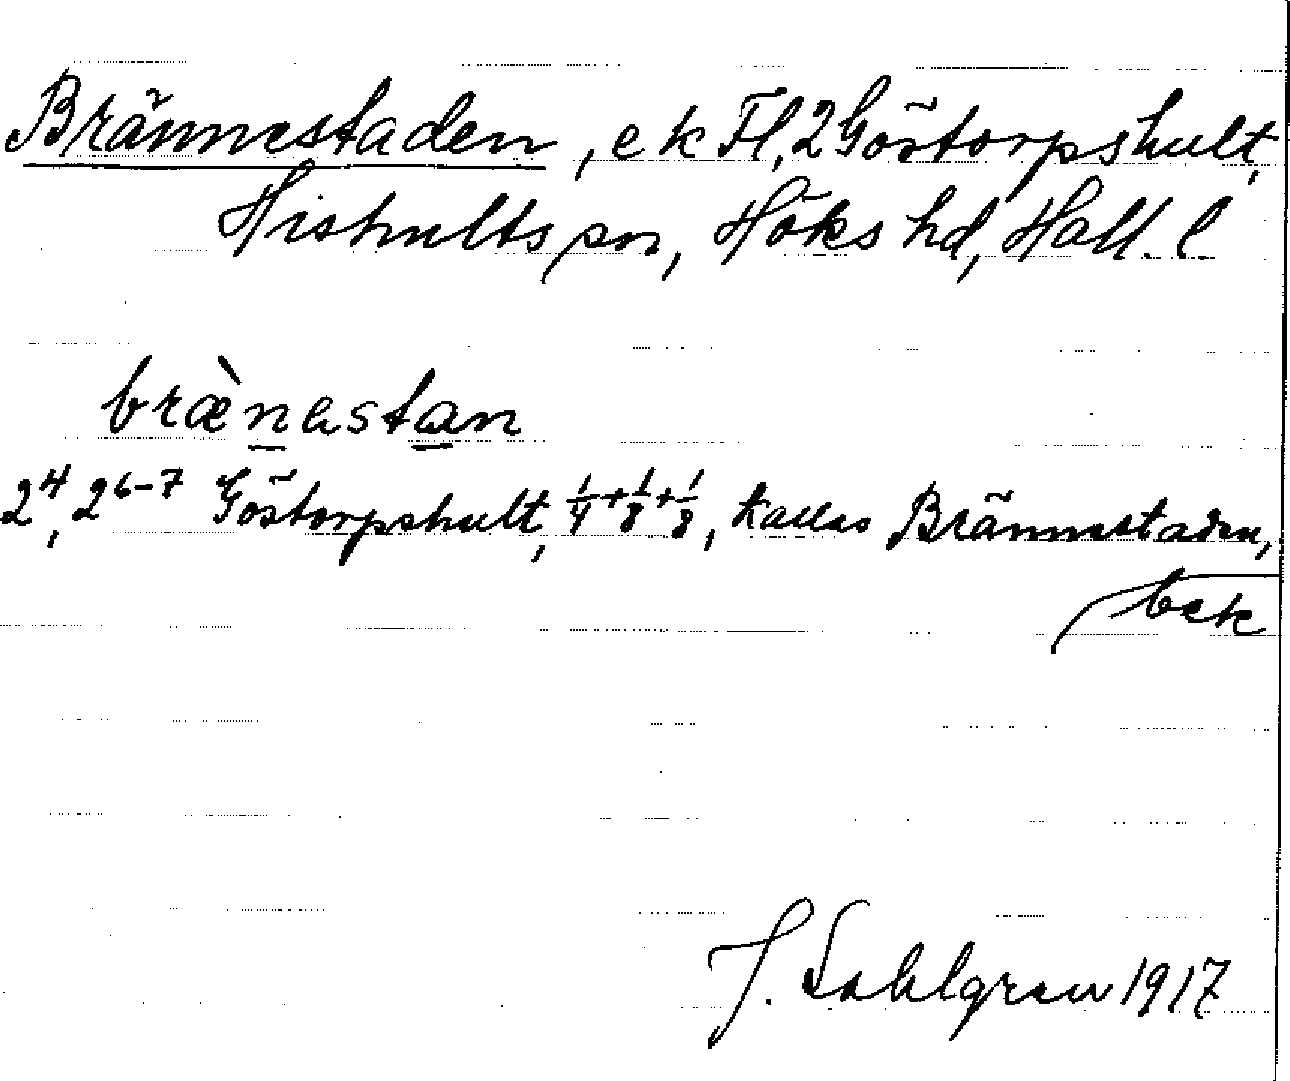 Brännestaden, e k Fl, 2 Göstorpshult,
Hishults sn, Höks hd, Hall. l.
brænastan
2⁴, 2⁶⁻⁷ Göstorpshult, 1/4+1/8+1/8, kallas Brännestaden,
bek
J. Sahlgren 1917